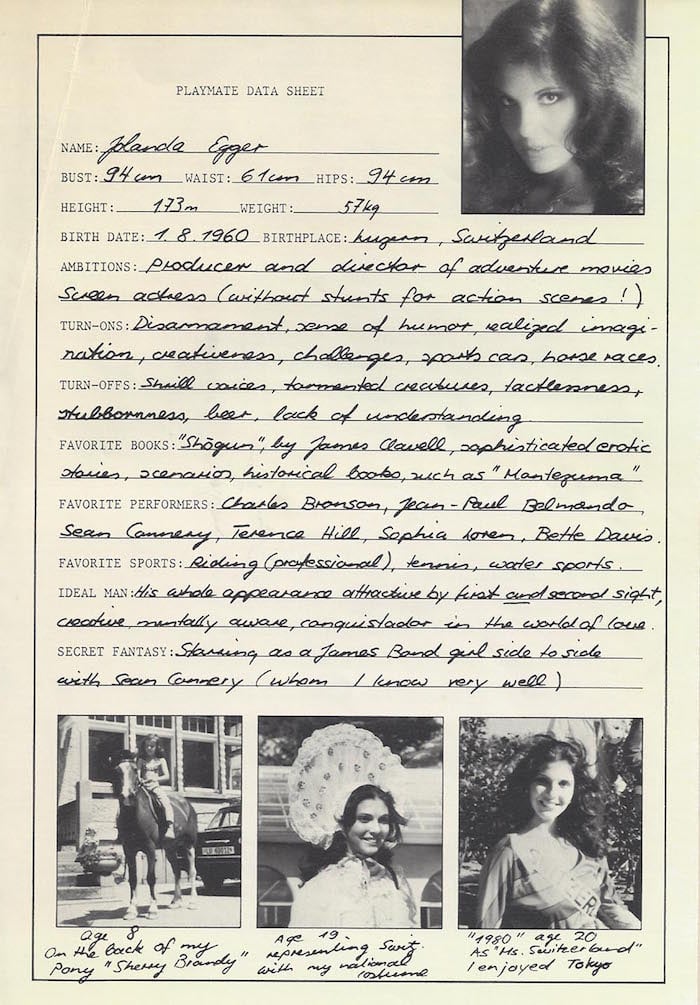 PLAYMATE DATA SHEET
NAME: Jolanda Egger
BUST: 94 cm WAIST: 61 cm HIPS: 94 cm
HEIGHT: 173 m WEIGHT: 57 kg
BIRTH DATE: 1.8.1960 BIRTHPLACE: Luzern, Switzerland
AMBITIONS: Producer and director of adventure movies
Screen actress (without stunts for action scenes!)
TURN-ONS: Disarmament, sense of humor, realized imagi-
nation, creativeness, challenges, sports cars, horse races.
TURN-OFFS: Shrill voices, tormented creatures, tactlessness,
stubbornness, beer, lack of understanding
FAVORITE BOOKS: "Shōgun", by James Clavell, sophisticated erotic
stories, scenarios, historical books, such as "Montezuma"
FAVORITE PERFORMERS: Charles Bronson, Jean-Paul Belmondo,
Sean Connery, Terence Hill, Sophia Loren, Bette Davis.
FAVORITE SPORTS: Riding (professional), tennis, water sports.
IDEAL MAN: His whole appearance attractive by first and second sight,
creative, mentally aware, conquistador in the world of love.
SECRET FANTASY: Starring as a James Bond girl side to side
with Sean Connery (whom I know very well)
Age 8
On the back of my
Pony "Sherry Brandy"
Age 19
representing Switz.
with my national
costume
"1980" age 20
As "Ms. Switzerland"
I enjoyed Tokyo